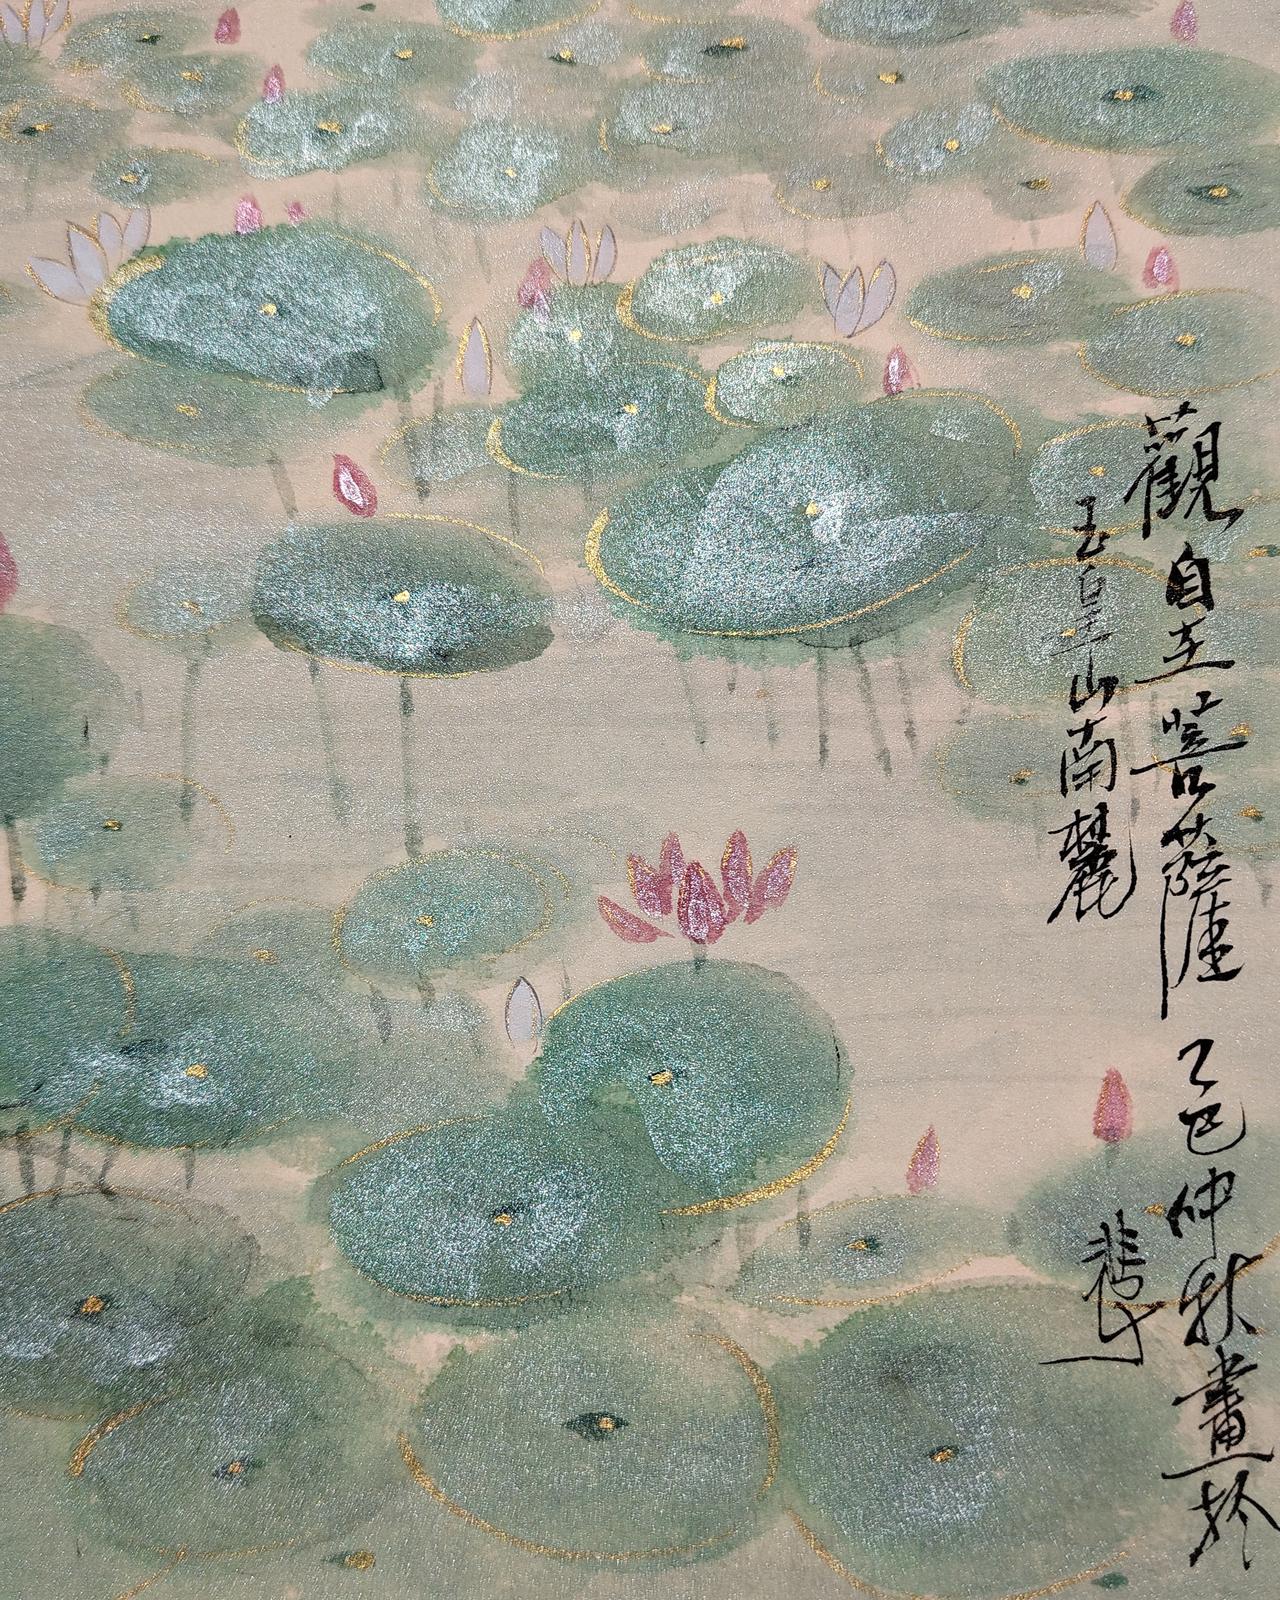 觀自在菩薩 乙巳仲秋畫於
玉皇山南麓